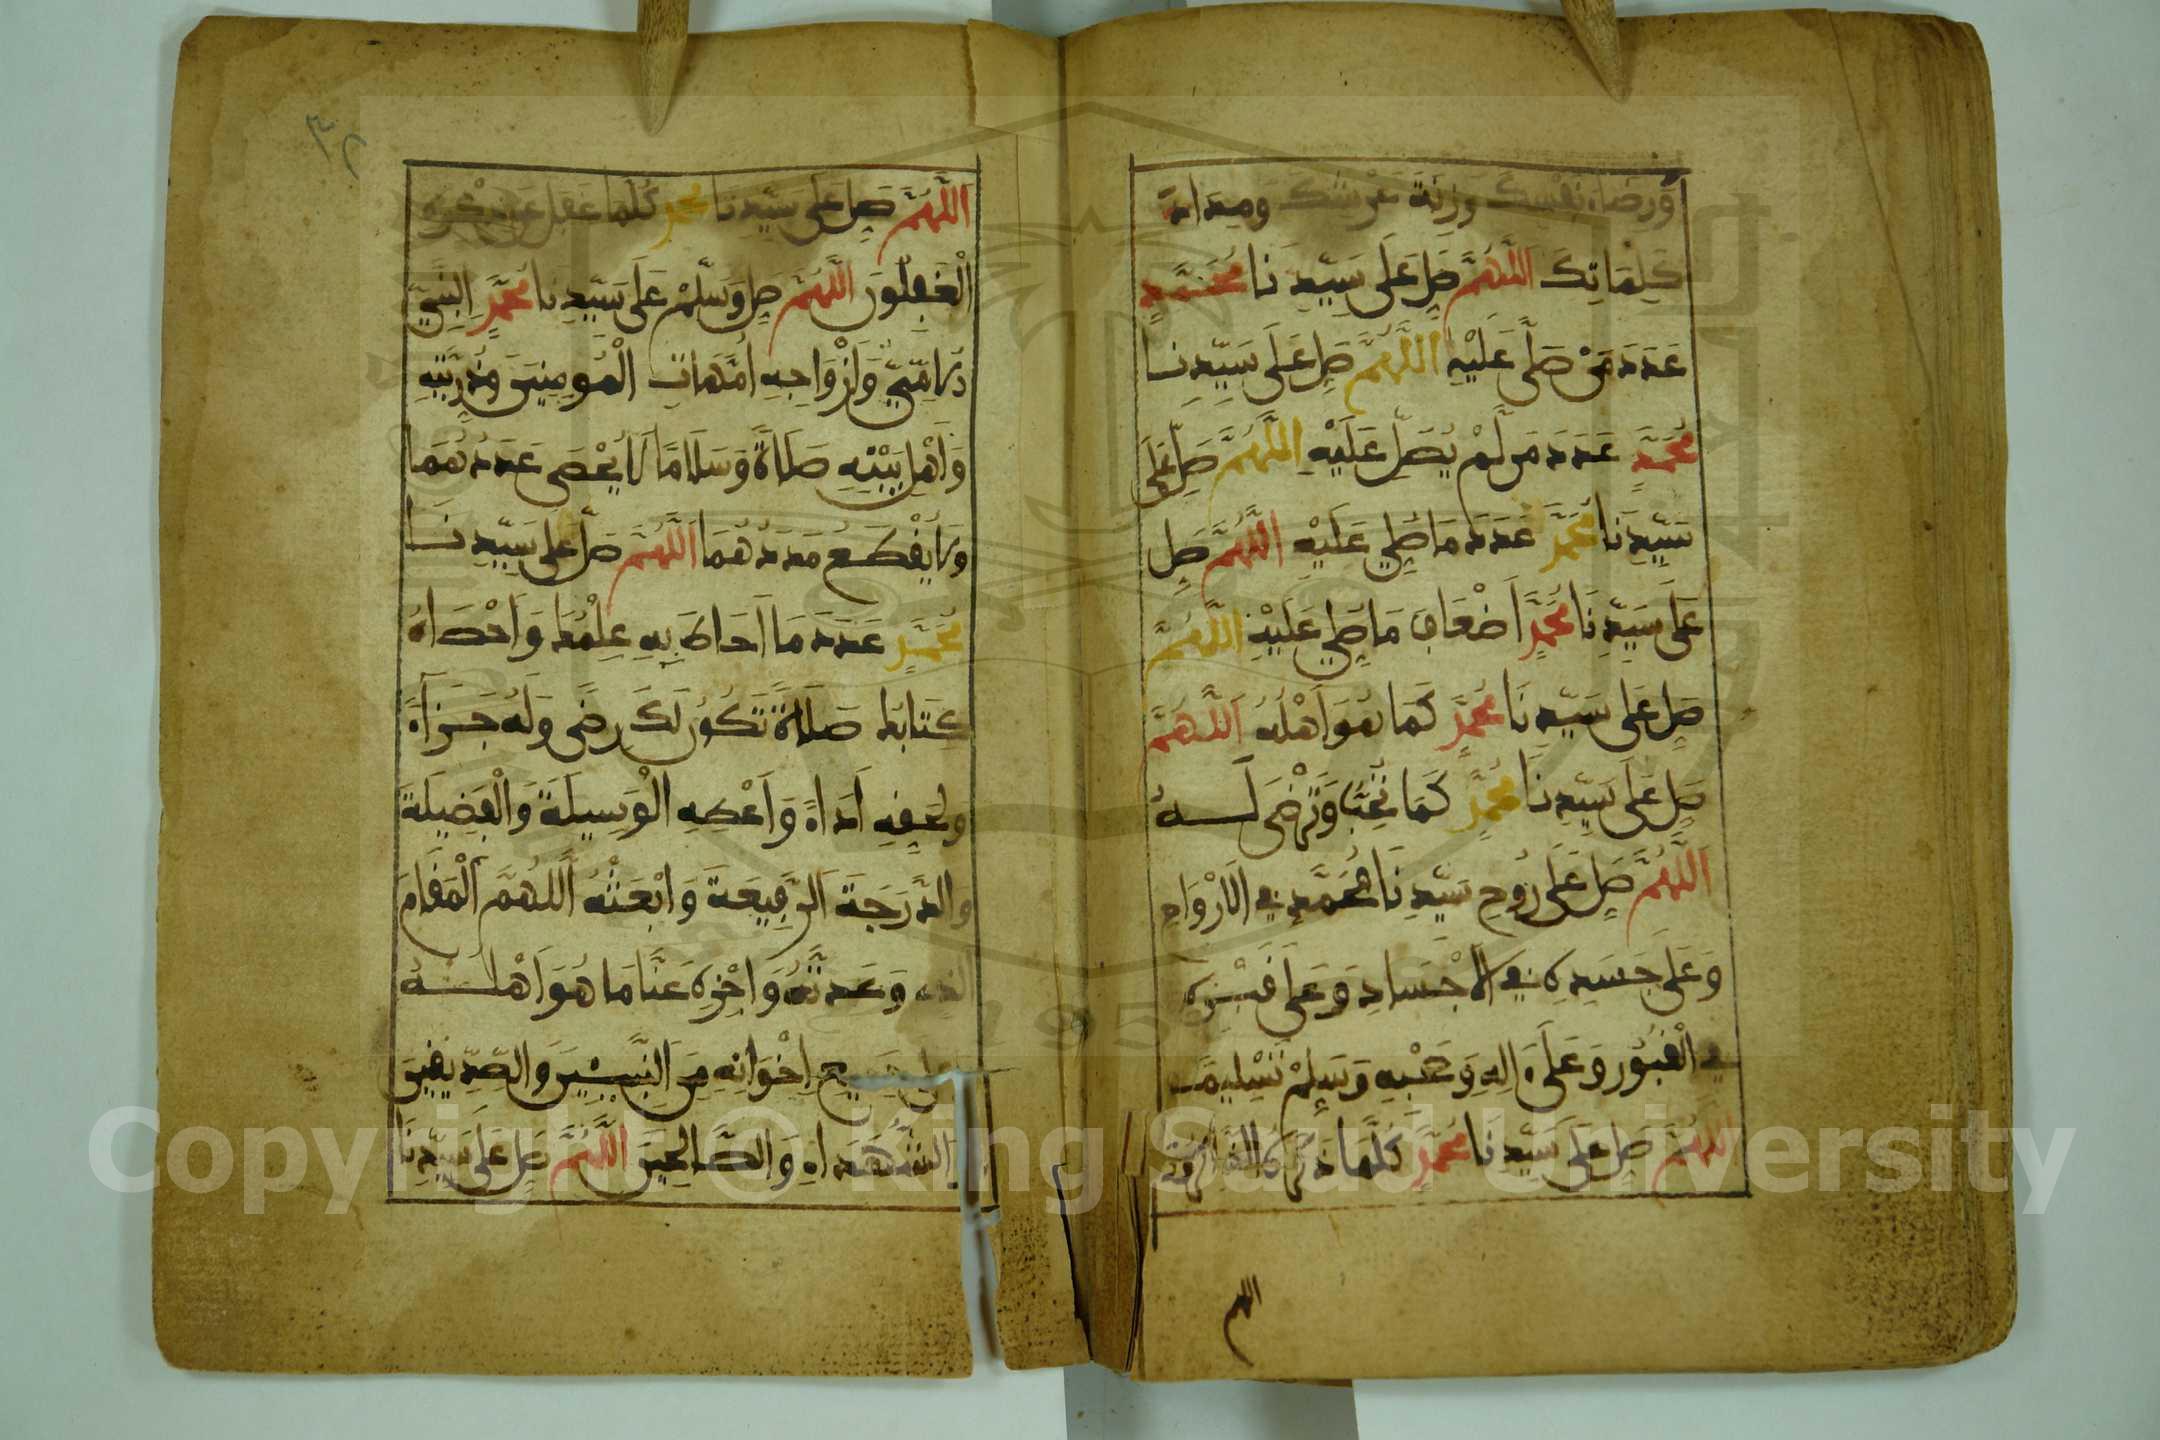 وَرِضَاءَ نَفْسِكَ وَزِنَةَ عَرْشِكَ وَمِدَادَ
كَلِمَاتِكَ اللَّهُمَّ صَلِّ عَلَى سَيِّدِنَا مُحَمَّدٍ
عَدَدَ مَنْ صَلَّى عَلَيْهِ اللَّهُمَّ صَلِّ عَلَى سَيِّدِنَا
مُحَمَّدٍ عَدَدَ مَن لَّمْ يُصَلِّ عَلَيْهِ اللَّهُمَّ صَلِّ عَلَى
سَيِّدِنَا مُحَمَّدٍ عَدَدَ مَا صُلِّيَ عَلَيْهِ اللَّهُمَّ صَلِّ
عَلَى سَيِّدِنَا مُحَمَّدٍ أَضْعَافَ مَا صُلِّيَ عَلَيْهِ اللَّهُمَّ
صَلِّ عَلَى سَيِّدِنَا مُحَمَّدٍ كَمَا هُوَ أَهْلُهُ اللَّهُمَّ
صَلِّ عَلَى سَيِّدِنَا مُحَمَّدٍ كَمَا تُحِبُّ وَتَرْضَى لَهُ
اللَّهُمَّ صَلِّ عَلَى رُوحِ سَيِّدِنَا مُحَمَّدٍ فِي الَارْوَاحِ
وَعَلَى جَسَدِهِ فِي الَاجْسَادِ وَعَلَى قَبْرِهِ
فِي الْقُبُورِ وَعَلَى ءَالِهِ وَصَحْبِهِ وَسَلِّمْ تَسْلِيمًا
اللَّهُمَّ صَلِّ عَلَى سَيِّدِنَا مُحَمَّدٍ كُلَّمَا ذَكَرَهُ الذَّاكِرُونَ
اللهم
٣٢
اللَّهُمَّ صَلِّ عَلَى سَيِّدِنَا مُحَمَّدٍ كُلَّمَا غَفَلَ عَن ذِكْرِهِ
الْغَفِلُونَ اللَّهُمَّ صَلِّ وَسَلِّمْ عَلَى سَيِّدِنَا مُحَمَّدٍ النَّبِيِّ
الُامِّيِّ وَأَزْوَاجِهِ أُمَّهَاتِ الْمُومِنِينَ وَذُرِّيَّتِهِ
وَأَهْلِ بَيْتِهِ صَلَاةً وَسَلَامًا لَا يُحْصَى عَدَدُهُمَا
وَلَا يُقْطَعُ مَدَدُهُمَا اللَّهُمَّ صَلِّ عَلَى سَيِّدِنَا
مُحَمَّدٍ عَدَدَ مَا أَحَاطَ بِهِ عِلْمُكَ وَأَحْصَاهُ
كِتَابُكَ صَلَاةً تَكُونُ لَكَ رِضًى وَلَهُ جَزَاءً
وَلِحَقِّهِ أَدَاءً وَأَعْطِهِ الْوَسِيلَةَ وَالْفَضِيلَةَ
وَالدَّرَجَةَ الرَّفِيعَةَ وَابْعَثْهُ اللَّهُمَّ الْمَقَامَ
الَّذِي وَعَدتَّهُ وَاجْزِهِ عَنَّا مَا هُوَ أَهْلُهُ
وَعَلَى جَمِيعِ إِخْوَانِهِ مِنَ النَّبِيِّينَ وَالصِّدِّيقِينَ
وَالشُّهَدَاءِ وَالصَّالِحِينَ اللَّهُمَّ صَلِّ عَلَى سَيِّدِنَا
Copyright © King Saud University
1957